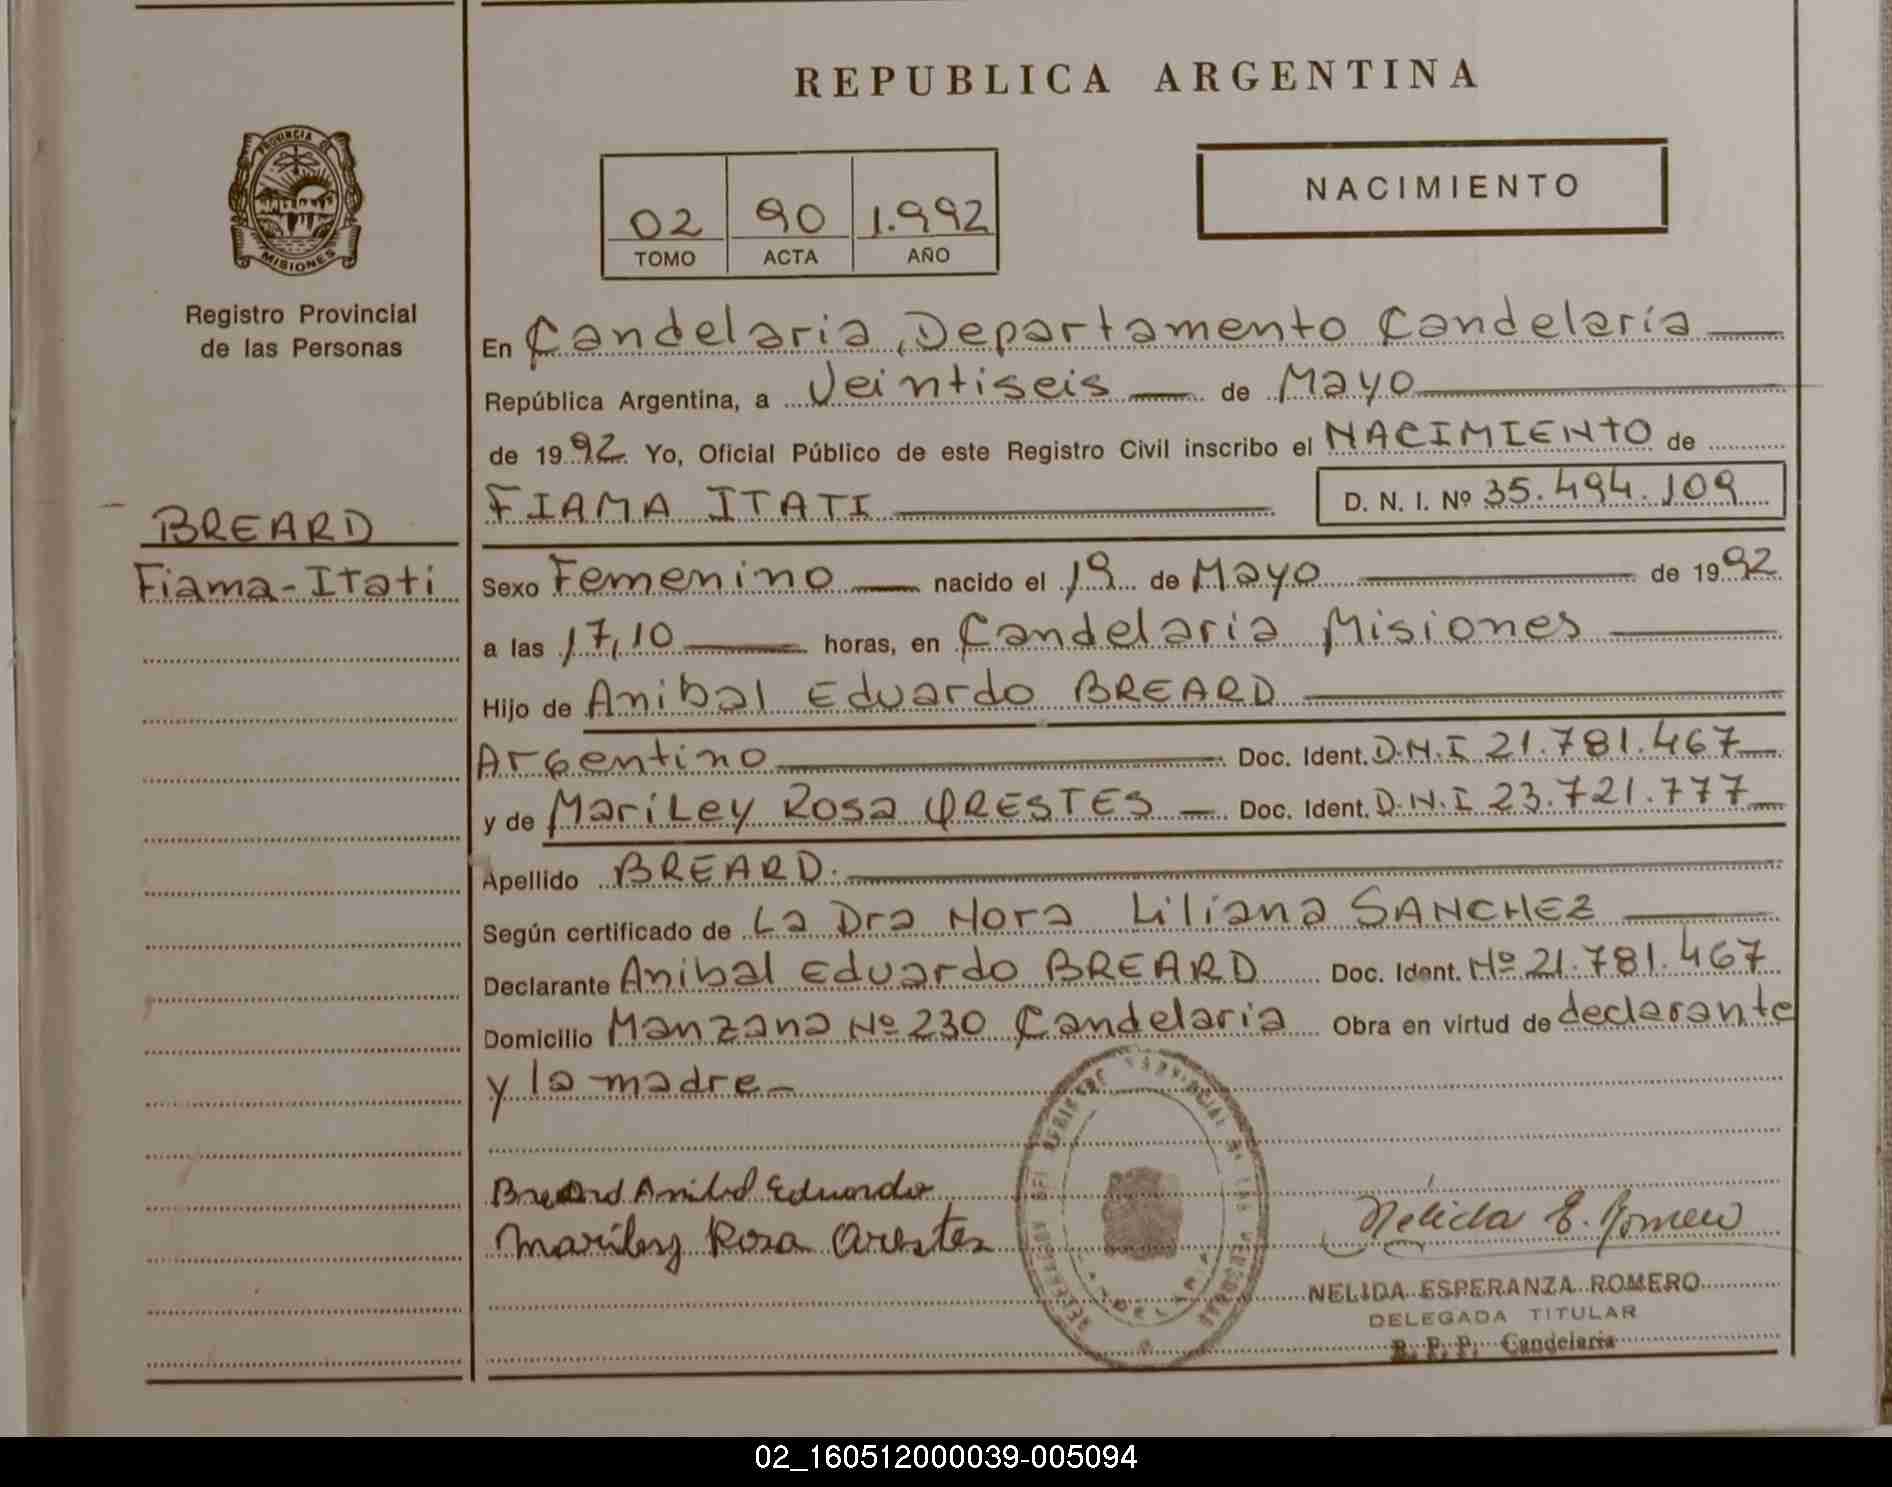 REPUBLICA ARGENTINA
PROVINCIA DE
MISIONES
Registro Provincial
de las Personas
02 90 1.992
TOMO ACTA AÑO
NACIMIENTO
En Candelaria, Departamento Candelaria
República Argentina, a Veintiseis de Mayo
de 1992 Yo, Oficial Público de este Registro Civil inscribo el NACIMIENTO de
FIAMA ITATI D. N. I. Nº 35.494.109
BREARD
Fiama-Itati
Sexo Femenino nacido el 19 de Mayo de 1992
a las 17,10 horas, en Candelaria Misiones
Hijo de Anibal Eduardo BREARD
Argentino Doc. Ident. D.N.I 21.781.467
y de Mariley Rosa ORESTES Doc. Ident. D.N.I 23.721.777
Apellido BREARD.
Según certificado de La Dra Nora Liliana SANCHEZ
Declarante Anibal Eduardo BREARD Doc. Ident. Nº 21.781.467
Domicilio Manzana Nº 230 Candelaria Obra en virtud de declarante
y la madre
Breard Anibal Eduardo
Mariley Rosa Orestes
Nélida E. Romero
NELIDA ESPERANZA ROMERO
DELEGADA TITULAR
R. P. P. Candelaria
02_160512000039-005094